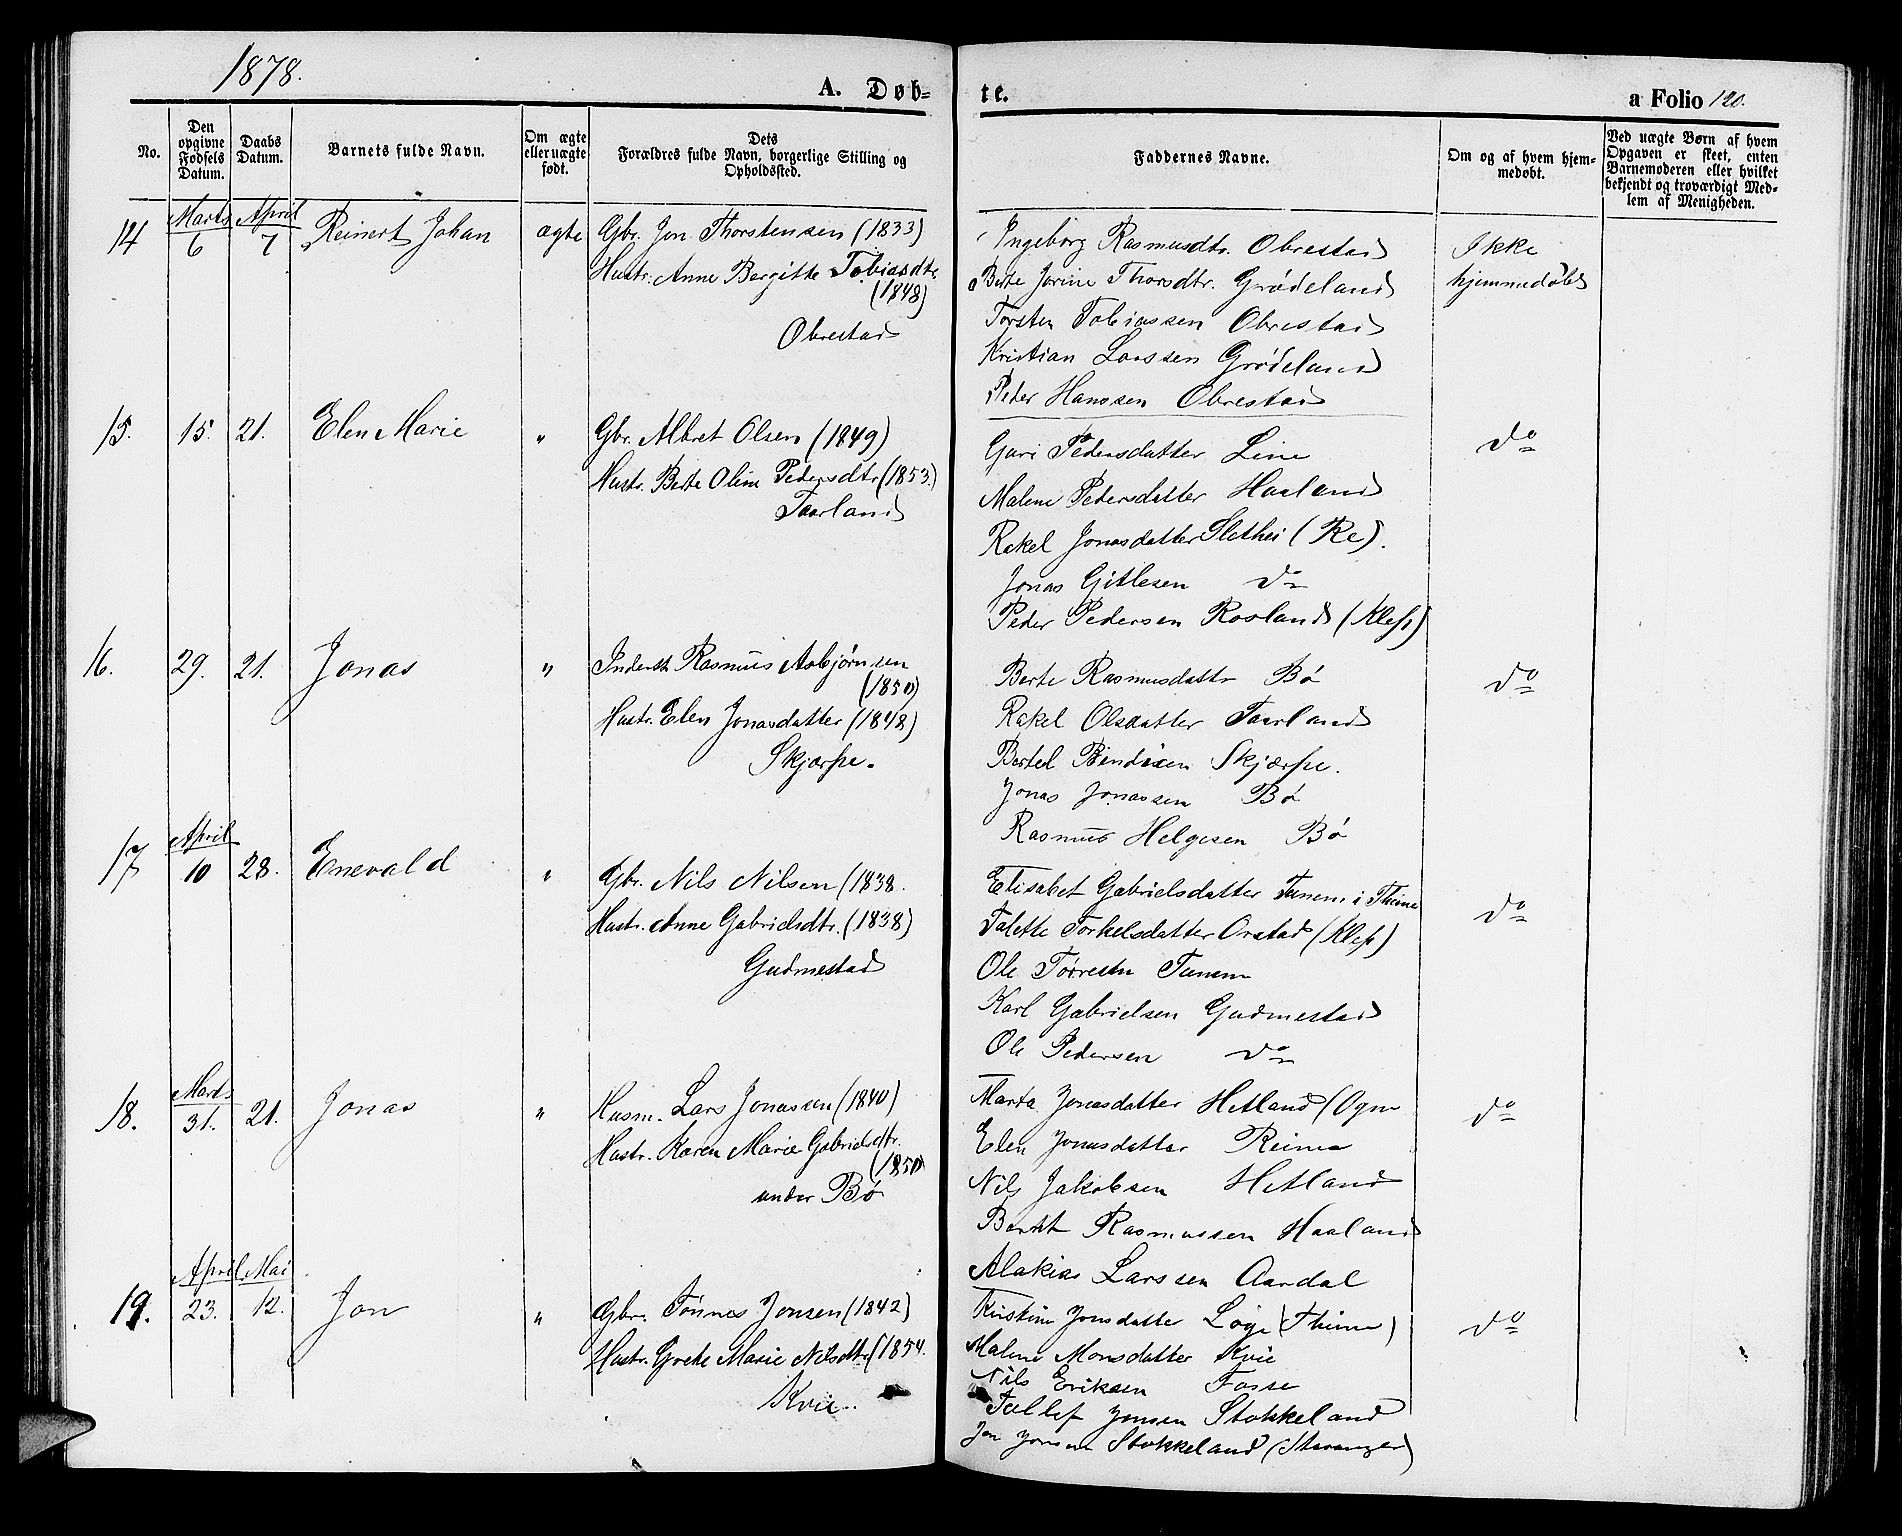 1878.
A. Døb-
te.
a Folio 120.
No.
Den opgivne Fødsels Datum.
Daabs Datum.
Barnets fulde Navn.
Om ægte eller uægte født.
Dets Forældres fulde Navn, borgerlige Stilling og Opholdssted.
Faddernes Navne.
Om og af hvem hjemmedøbt.
Ved uægte Børn af hvem Opgaven er skeet, enten Barnemoderen eller hvilket bekjendt og troværdigt Medlem af Menigheden.
14
Marts
6
April
7
Reinert Johan
ægte
Gbr. Jon Thorstensen (1833)
Hustr. Anne Bergitte Tobiasdtr.
(1848)
Obrestad
Ingeborg Rasmusdtr. Obrestad
Berte Jorine Thorsdtr. Grødeland
Torsten Tobiassen Obrestad
Kristian Larssen Grødeland
Peder Hanssen Obrestad
Ikke
hjemmedøbt
15.
15.
21.
Elen Marie
"
Gbr. Albret Olsen (1849)
Hustr. Berte Oline Pedersdtr (1853.)
Taarland
Guri Pedersdatter Line
Malene Pedersdatter Haaland
Rakel Jonasdatter Slethei (Re).
Jonas Gitlesen do
Peder Pedersen Rosland (Klep)
do
16.
29.
21.
Jonas
"
Inderst Rasmus Asbjørnsen
(1850)
Hustr. Elen Jonasdatter (1848)
Skjærpe.
Berte Rasmusdattr Bø
Rakel Olsdatter Taarland
Bertel Bendixen Skjærpe.
Jonas Jonassen Bø
Rasmus Helgesen Bø
do
17
April
10
28.
Enevald
"
Gbr. Nils Nilsen (1838.
Hustr. Anne Gabrielsdtr. (1838)
Gudmestad
Elisabet Gabrielsdatter Tunem i Thime
Talette Torkelsdatter Orstad (Klep)
Ole Torresen Tunem
Karl Gabrielsen Gudmestad
Ole Pedersen do
do
18.
Marts
31.
21.
Jonas
"
Husm. Lars Jonassen (1840)
Hustr. Karen Marie Gabrielsdtr.
(1850)
under Bø
Marta Jonasdatter Hetland (Ogne
Elen Jonasdatter Reime
Nils Jakobsen Hetland
Berent Rasmussen Haaland
Alakias Larssen Aardal
do
19.
April
23.
Mai
12.
Jon
"
Gbr. Tønnes Jonsen (1842)
Hustr. Grete Marie Nilsdtr. (1854.
Kvie.
Kristine Jonsdatter Løge (Thime)
Malene Monsdatter Kvie
Nils Eriksen Fosse
Tallef Jonsen Stokkeland
Jon Jonsen Stokkeland (Stavanger)
do